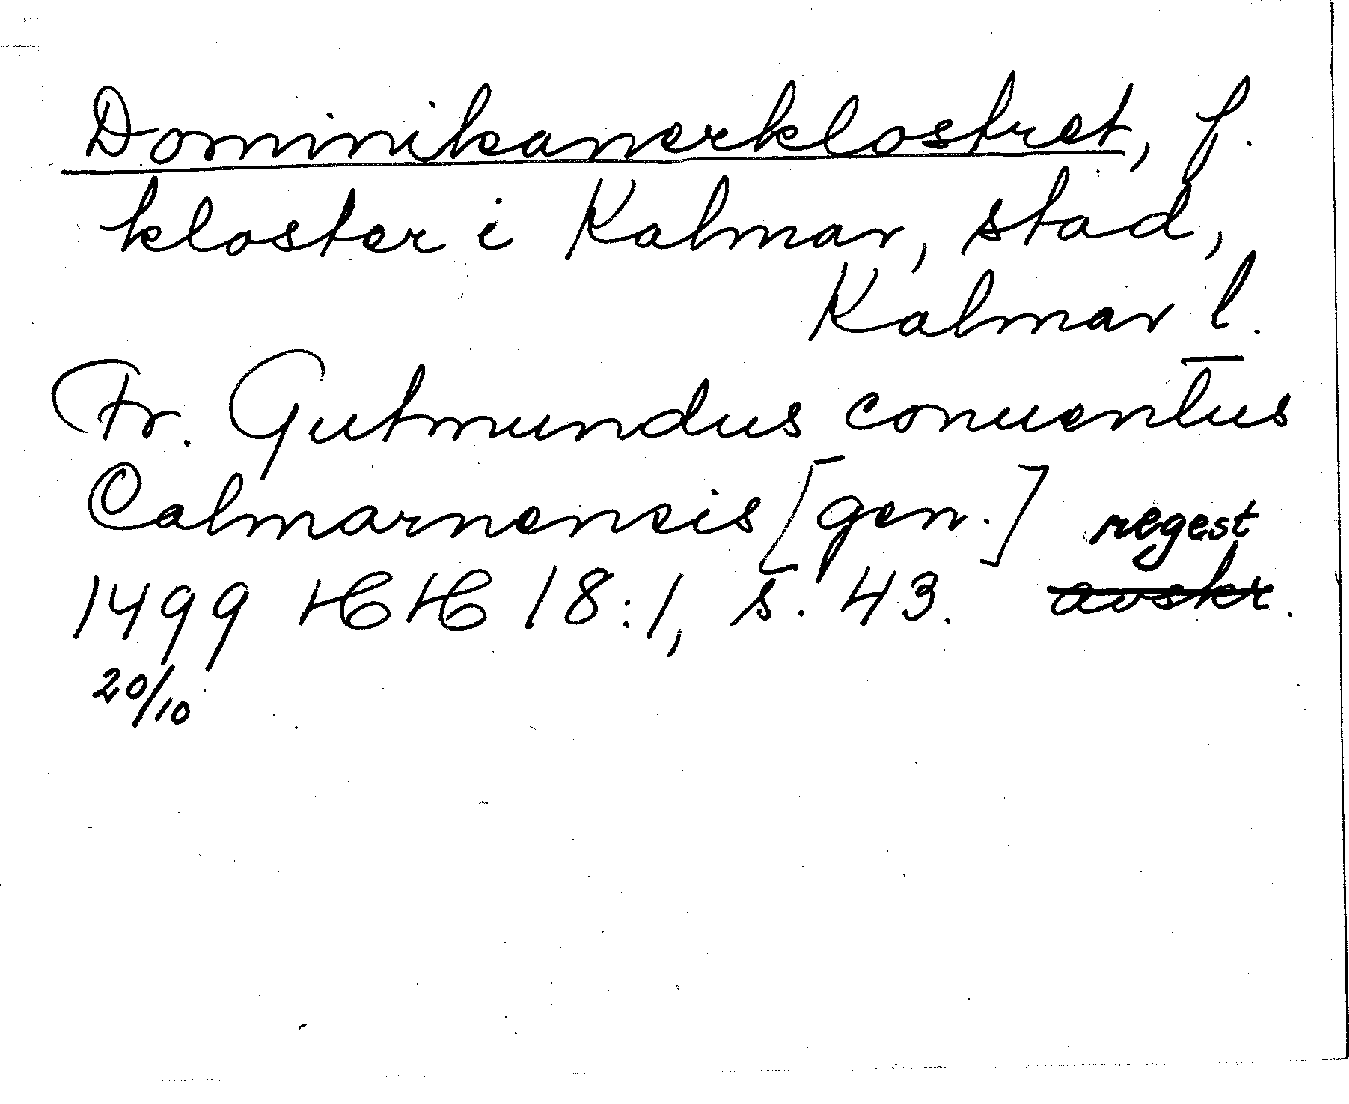 Dominikanerklostret, f.
kloster i Kalmar, stad,
Kalmar l.
Fr. Gutmundus conuentus
Calmarnensis [gen.] regest
1499 HH 18:1, s. 43. avskr.
20/10